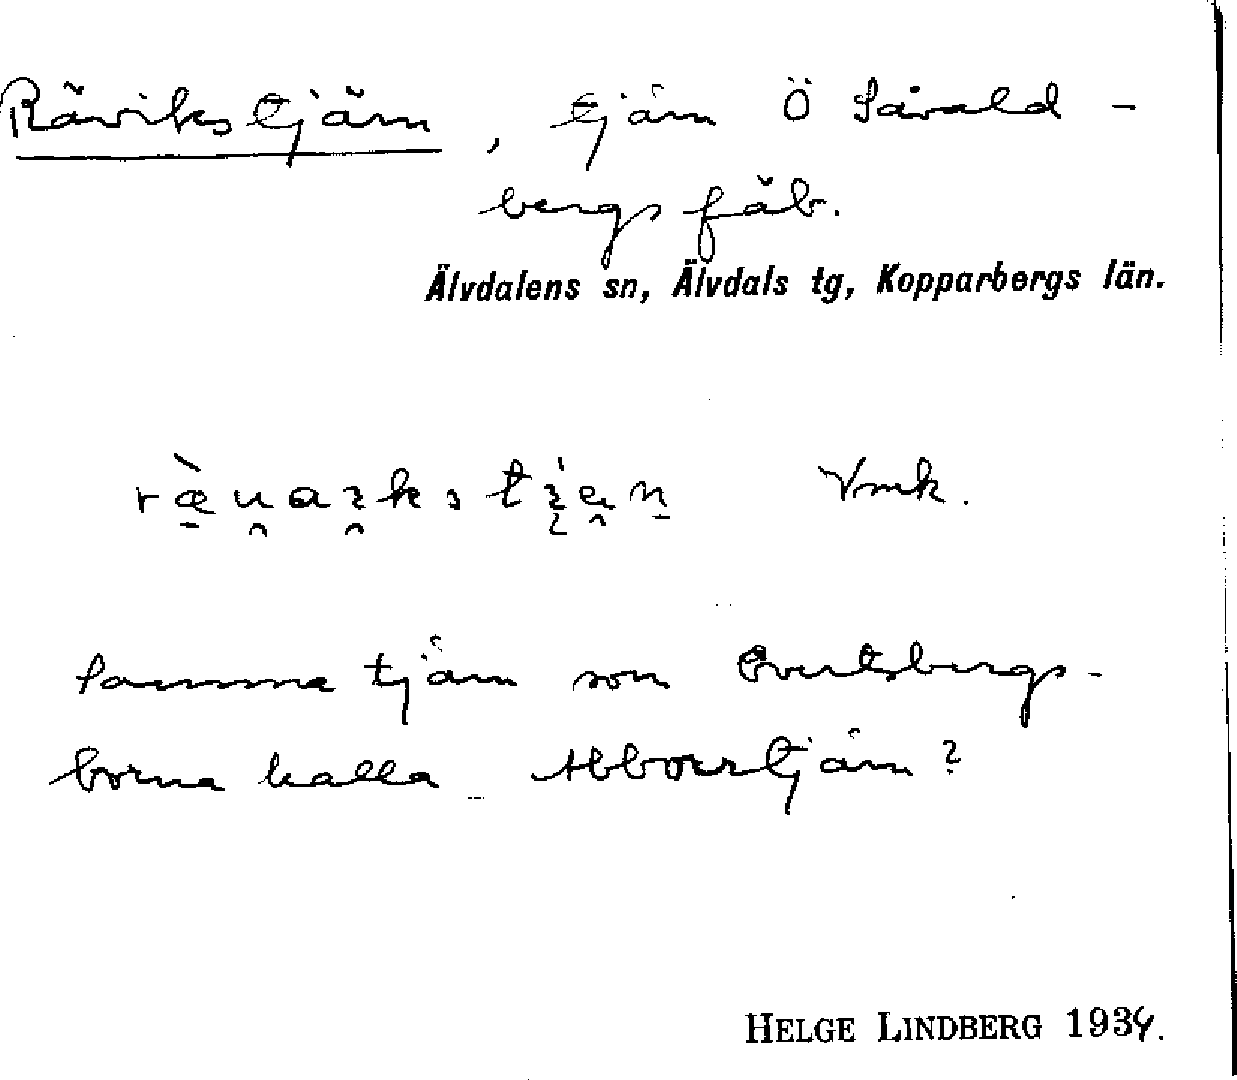 Rävikstjärn, tjärn Ö Såvald-
bergs fäb.
Älvdalens sn, Älvdals tg, Kopparbergs län.
Vmk.
Samma tjärn som Evertsbergs-
borna kalla Abborrtjärn?
HELGE LINDBERG 1934.